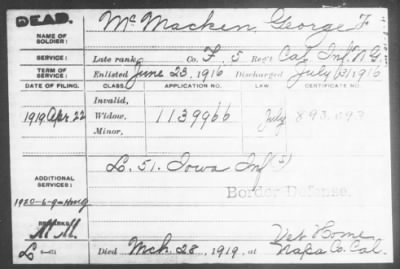 DEAD.
NAME OF SOLDIER: McMacken, George F.
SERVICE: Late rank, Co. F, 5 Reg't Cal. Inf. N.G.
TERM OF SERVICE: Enlisted June 23, 1916 Discharged July 1916
DATE OF FILING. CLASS. APPLICATION NO. LAW. CERTIFICATE NO.
Invalid,
1919 Apr. 22 Widow, 1139966 July 893,093
Minor,
L. 51. Iowa Inf
ADDITIONAL SERVICES:
Border Defense.
REMARKS:
Died Mch. 28, 1919, at Vet Home
Napa Co. Cal.